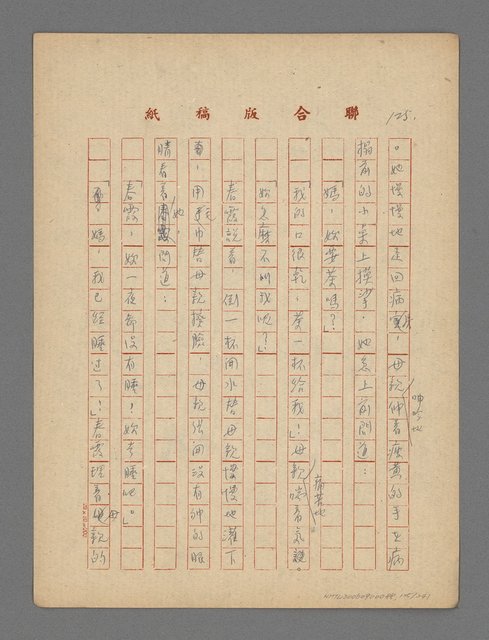 聯合版稿紙
125.
。她慢慢地走回病房,母親呻吟地伸着瘦黃的手在病
榻前的小桌上摸挲,她急上前問道:
「媽,妳要茶嗎?」
「我的口很乾,茶一杯給我!」母親痛苦地喘着氣說。
「妳怎麼不叫我呢?」
春霞說着 倒一杯開水替母親慢慢地灌下
用手巾替母親擦臉,母親張開沒有神的眼
睛看着她,問道:
「春霞,妳一夜都沒有睡?妳去睡吧。」
「媽,我已經睡過了!」春霞理着母親的